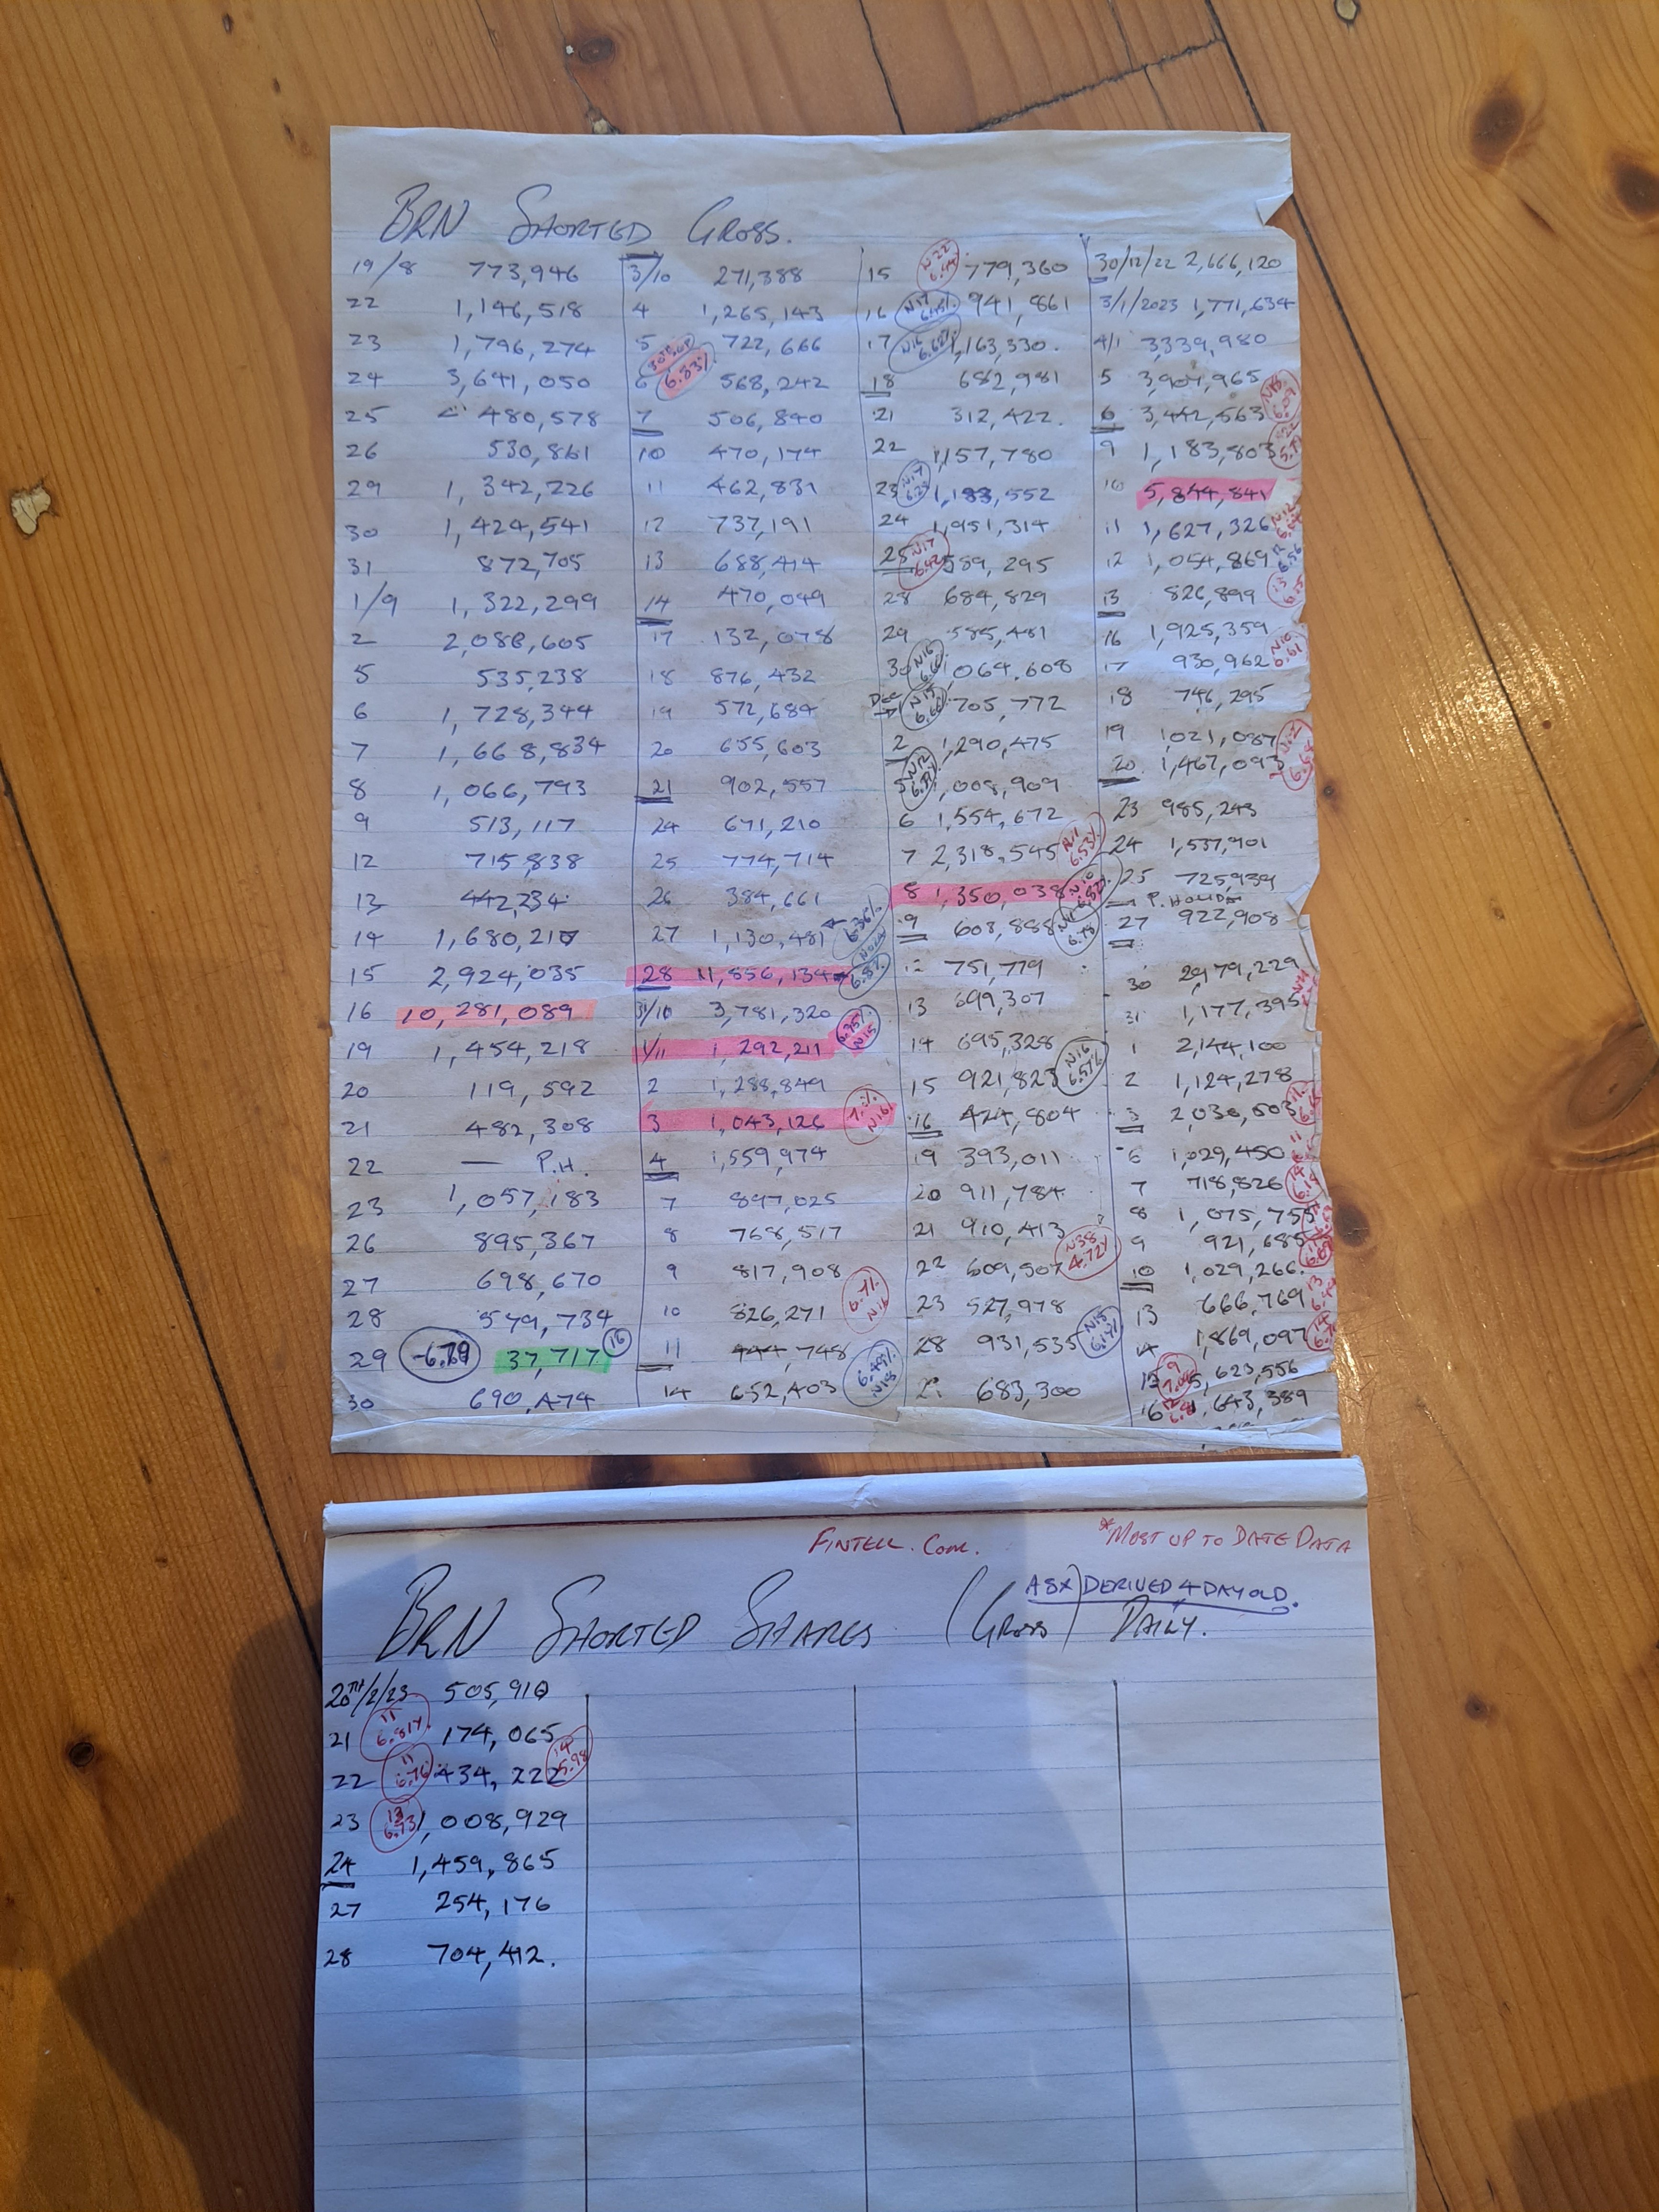 BRN SHORTED GROSS.
19/8 773,946
22 1,146,518
23 1,796,274
24 3,641,050
25 480,578
26 530,861
29 1,342,226
30 1,424,541
31 872,705
1/9 1,322,299
2 2,088,605
5 535,238
6 1,728,344
7 1,668,834
8 1,066,793
9 513,117
12 715,838
13 442,234
14 1,680,210
15 2,924,035
16 10,281,089
19 1,454,218
20 119,592
21 482,308
22 — P.H.
23 1,057,183
26 895,367
27 698,670
28 579,734
29 -6.79 37,717 16
30 690,474
3/10 271,388
4 1,265,143
5 722,666
6 6.83% 568,242
7 506,840
10 470,174
11 462,831
12 737,191
13 688,414
14 470,049
17 132,078
18 876,432
19 572,684
20 655,603
21 902,557
24 671,210
25 774,714
26 384,661
27 1,130,481 6.36%
28 11,856,134 6.8%
31/10 3,781,320
1/11 1,292,211 6.75% N15
2 1,288,849
3 1,043,126 N16
4 1,559,974
7 897,025
8 768,517
9 817,908
10 826,271 6.7% N16
11 444,748
14 652,403 6.49% N18
15 N22 779,360
16 N17 941,861
17 N16 1,163,330.
18 682,981
21 312,422.
22 1,157,780
23 N17 1,183,552
24 1,951,314
25 N17 6.42 589,295
28 684,829
29 585,481
30 N16 1,064,608
Dec 1 N15 705,772
2 1,290,475
5 N12 1,008,909
6 1,554,672
7 2,318,545 N11 6.53%
8 1,350,038 N10
9 603,888 N11 6.78
12 751,779
13 699,307
14 695,328
15 921,823 N16 6.57%
16 424,804
19 393,011
20 911,784
21 910,413
22 609,507 N38 4.72%
23 527,978
28 931,535 N15
683,300
30/12/22 2,666,120
3/1/2023 1,771,634
4/1 3,339,980
5 3,904,965
6 3,442,563 6.09
9 1,183,803
10 5,844,841
11 1,627,326 N12
12 1,054,869
13 826,899
16 1,925,359
17 930,962 N10 6.61
18 746,295
19 1,021,087
20 1,467,093
23 985,243
24 1,537,901
25 725,939
P. HOLIDAY
27 922,908
30 2,979,229
31 1,177,395
1 2,144,100
2 1,124,278
3 2,030,603
6 1,029,450
7 718,826
8 1,075,755
9 921,685
10 1,029,266.
13 666,769
14 1,869,097
15 9 5,623,556
16 1,643,389
FINTELL.COM.
*MOST UP TO DATE DATA
ASX DERIVED 4 DAY OLD.
BRN SHORTED SHARES (GROSS) DAILY.
20TH/2/23 505,910
21 11 6.81% 174,065
22 11 6.76 434,222 14 5.98
23 13 6.73 1,008,929
24 1,459,865
27 254,176
28 704,412.